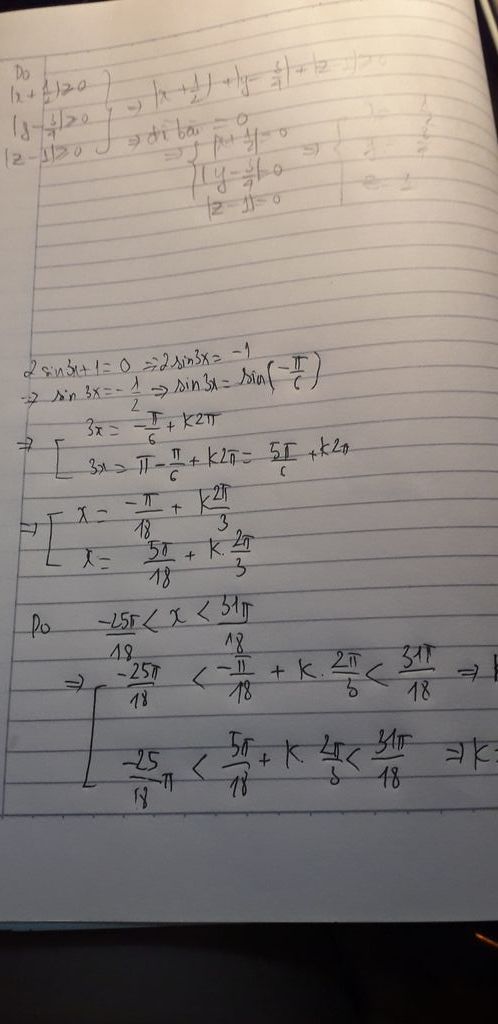 Do
|x + 1/2| ≥ 0
|y - 3/4| ≥ 0 } ⇒ |x + 1/2| + |y - 3/4| + |z - 1| ≥ 0
|z - 1| ≥ 0
⇒ = 0
⇒ { |x + 1/2| = 0
|y - 3/4| = 0 ⇒ {
|z - 1| = 0
2 sin3x + 1 = 0 ⇒ 2 sin3x = -1
⇒ sin 3x = - 1/2 ⇒ sin3x = sin(-π/6)
⇒ [ 3x = -π/6 + k2π
3x = π - π/6 + k2π = 5π/6 + k2π
⇒ [ x = -π/18 + k2π/3
x = 5π/18 + k. 2π/3
Do -25π/18 < x < 31π/18
⇒ [ -25π/18 < -π/18 + k. 2π/3 < 31π/18 ⇒
-25/18 π < 5π/18 + k. 2π/3 < 31π/18 ⇒ k =